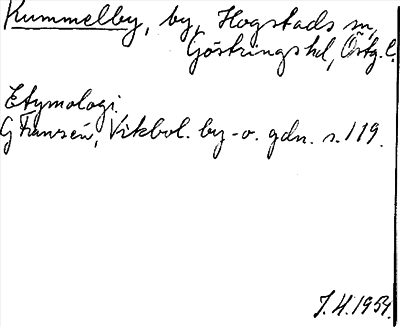 Kummelby, by, Hogstads sn,
Göstrings hd, Östg. l.
Etymologi.
G Franzén, Vikbol. by- o. gdn. s. 119.
J. H. 1954.